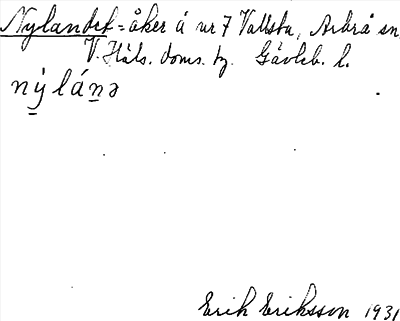 Nylandet = åker å nr 7 Vallsta, Arbrå sn.
V. Häls. doms. tg. Gävleb. l.
nýláṉə
Erik Eriksson 1931